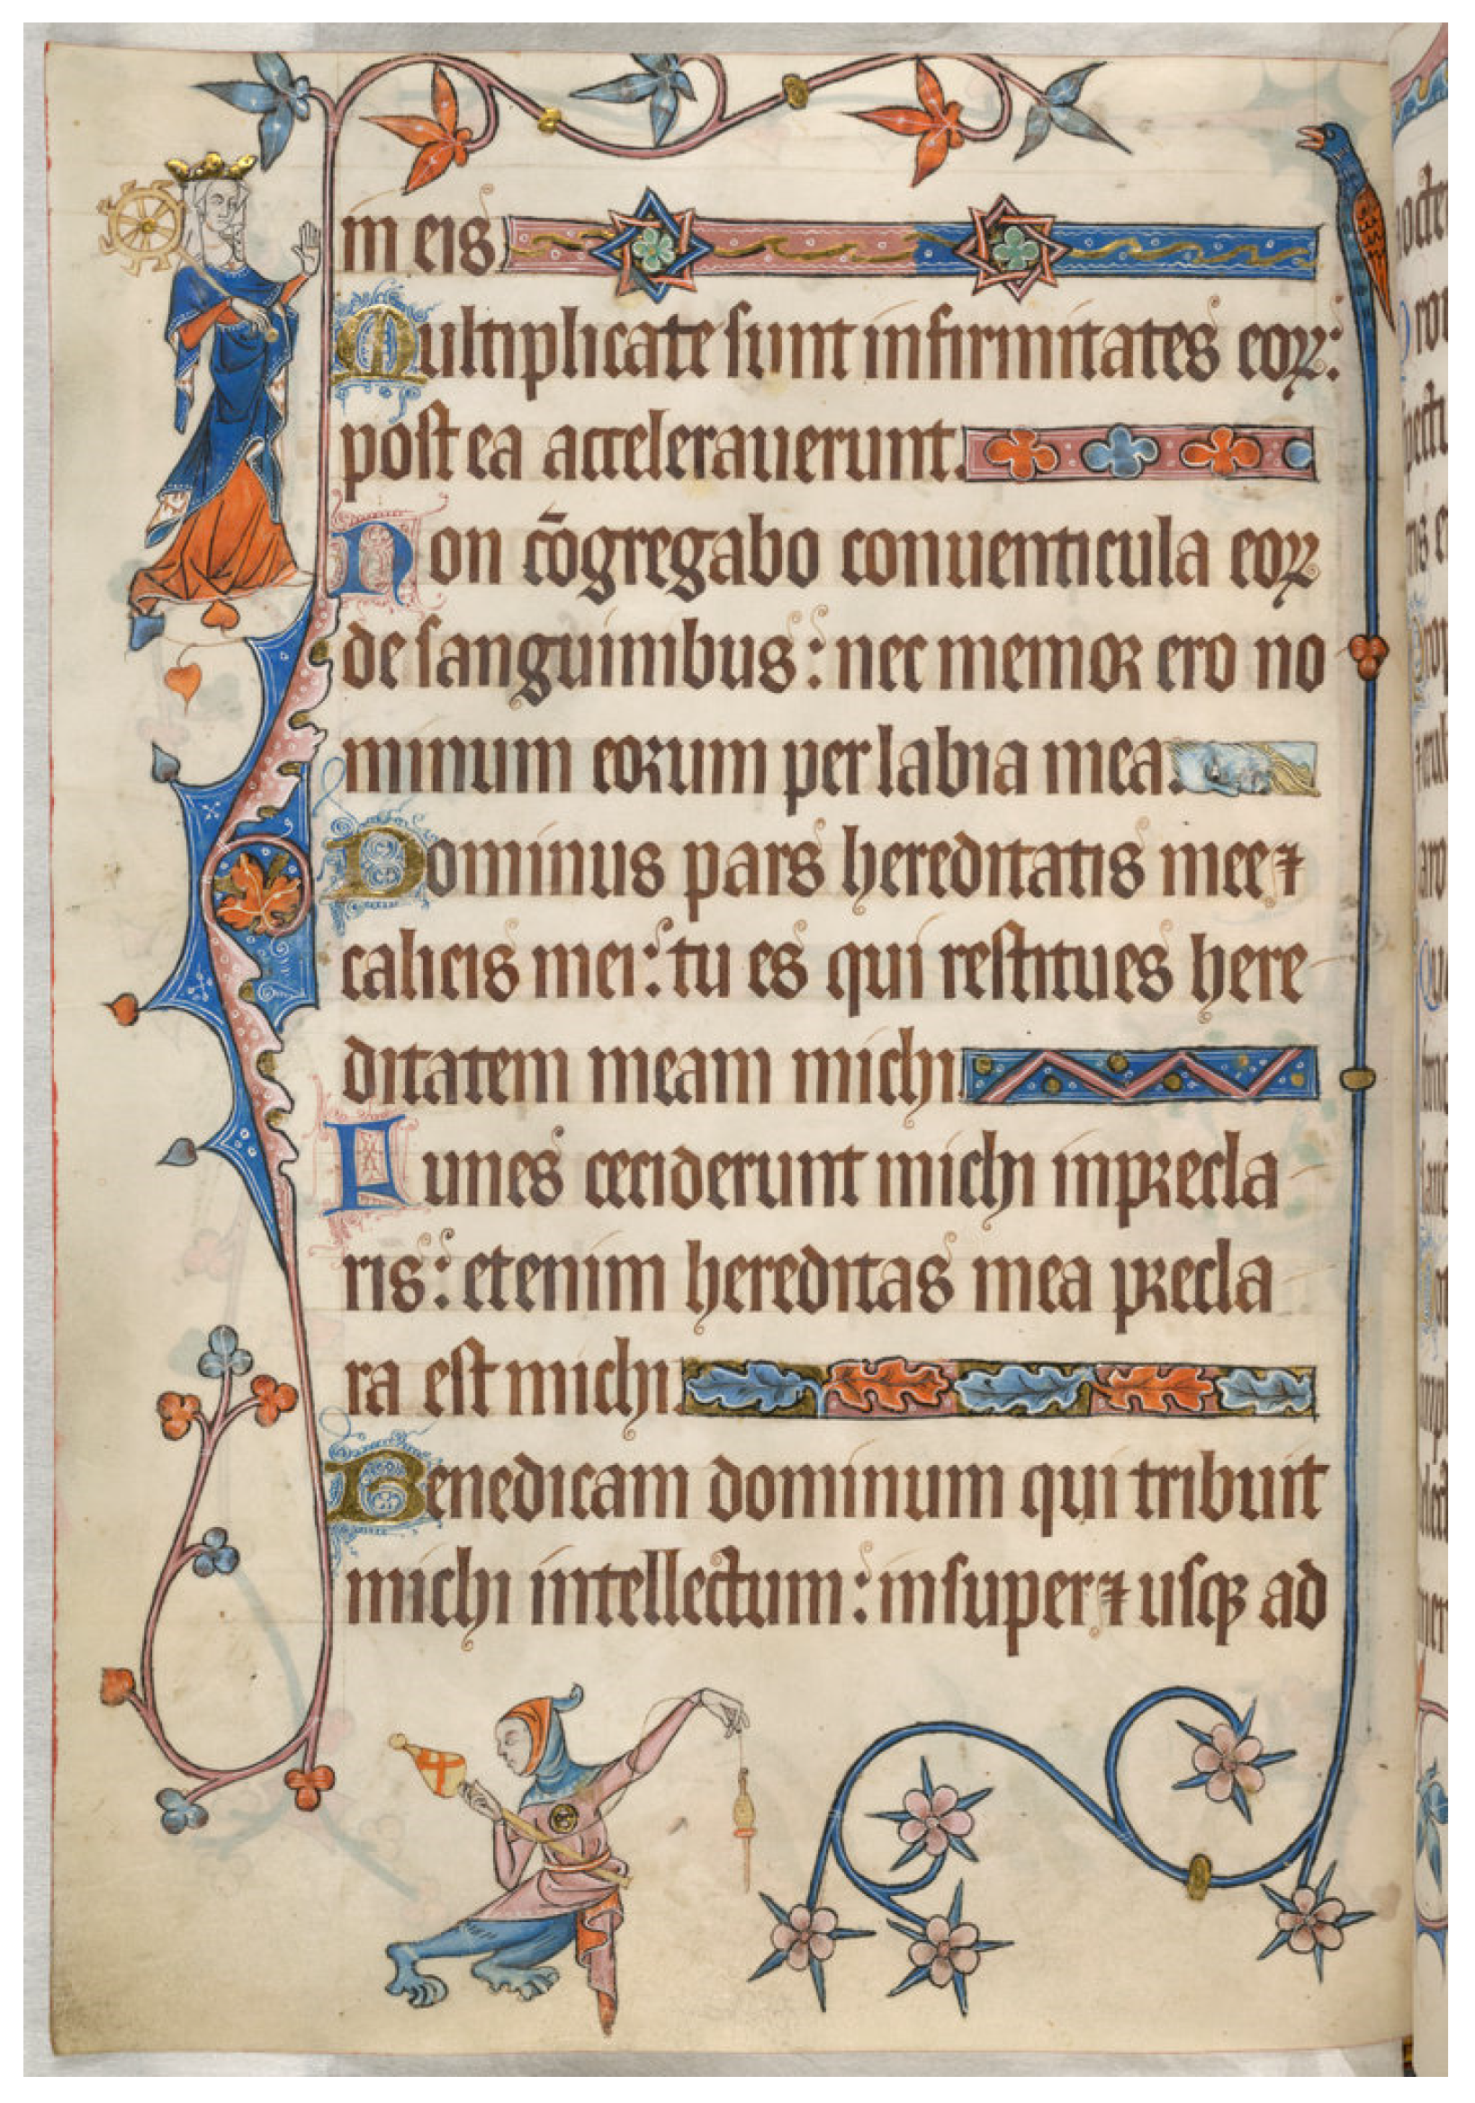 in eis
Multiplicate sunt infirmitates eoꝝ:
postea accelerauerunt.
Non cōgregabo conuenticula eoꝝ
de sanguinibus: nec memor ero no
minum eorum per labia mea.
Dominus pars hereditatis mee ⁊
calicis mei: tu es qui restitues here
ditatem meam michi.
Funes ceciderunt michi inprecla
ris: etenim hereditas mea precla
ra est michi.
Benedicam dominum qui tribuit
michi intellectum: insuper ⁊ usqꝫ ad